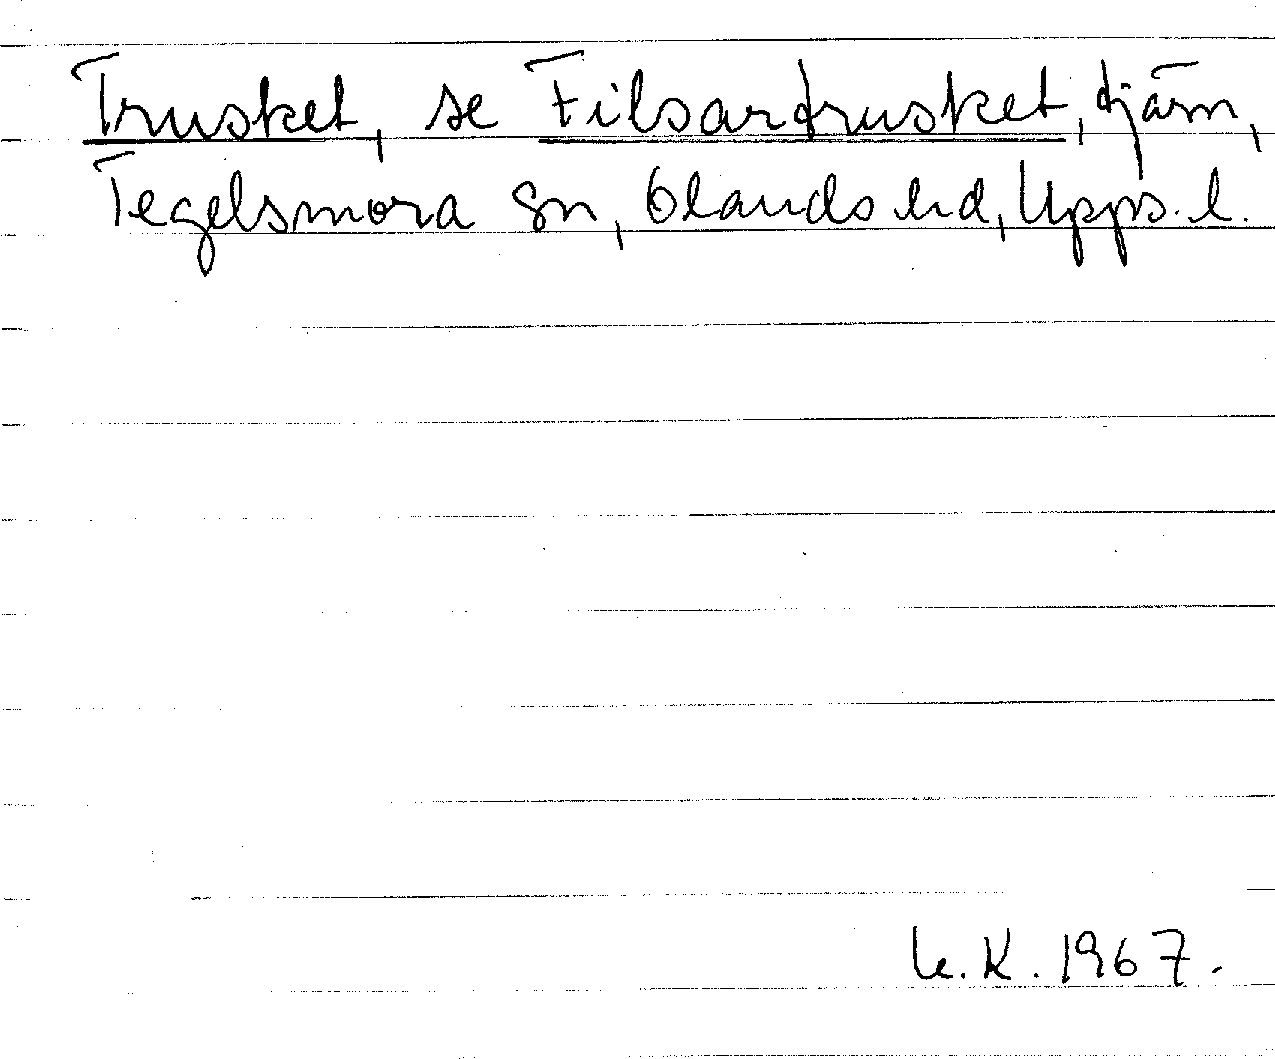 Trusket, se Filsartrusket, tjärn,
Tegelsmora sn, Olands hd, Upps. l.
K. 1967.